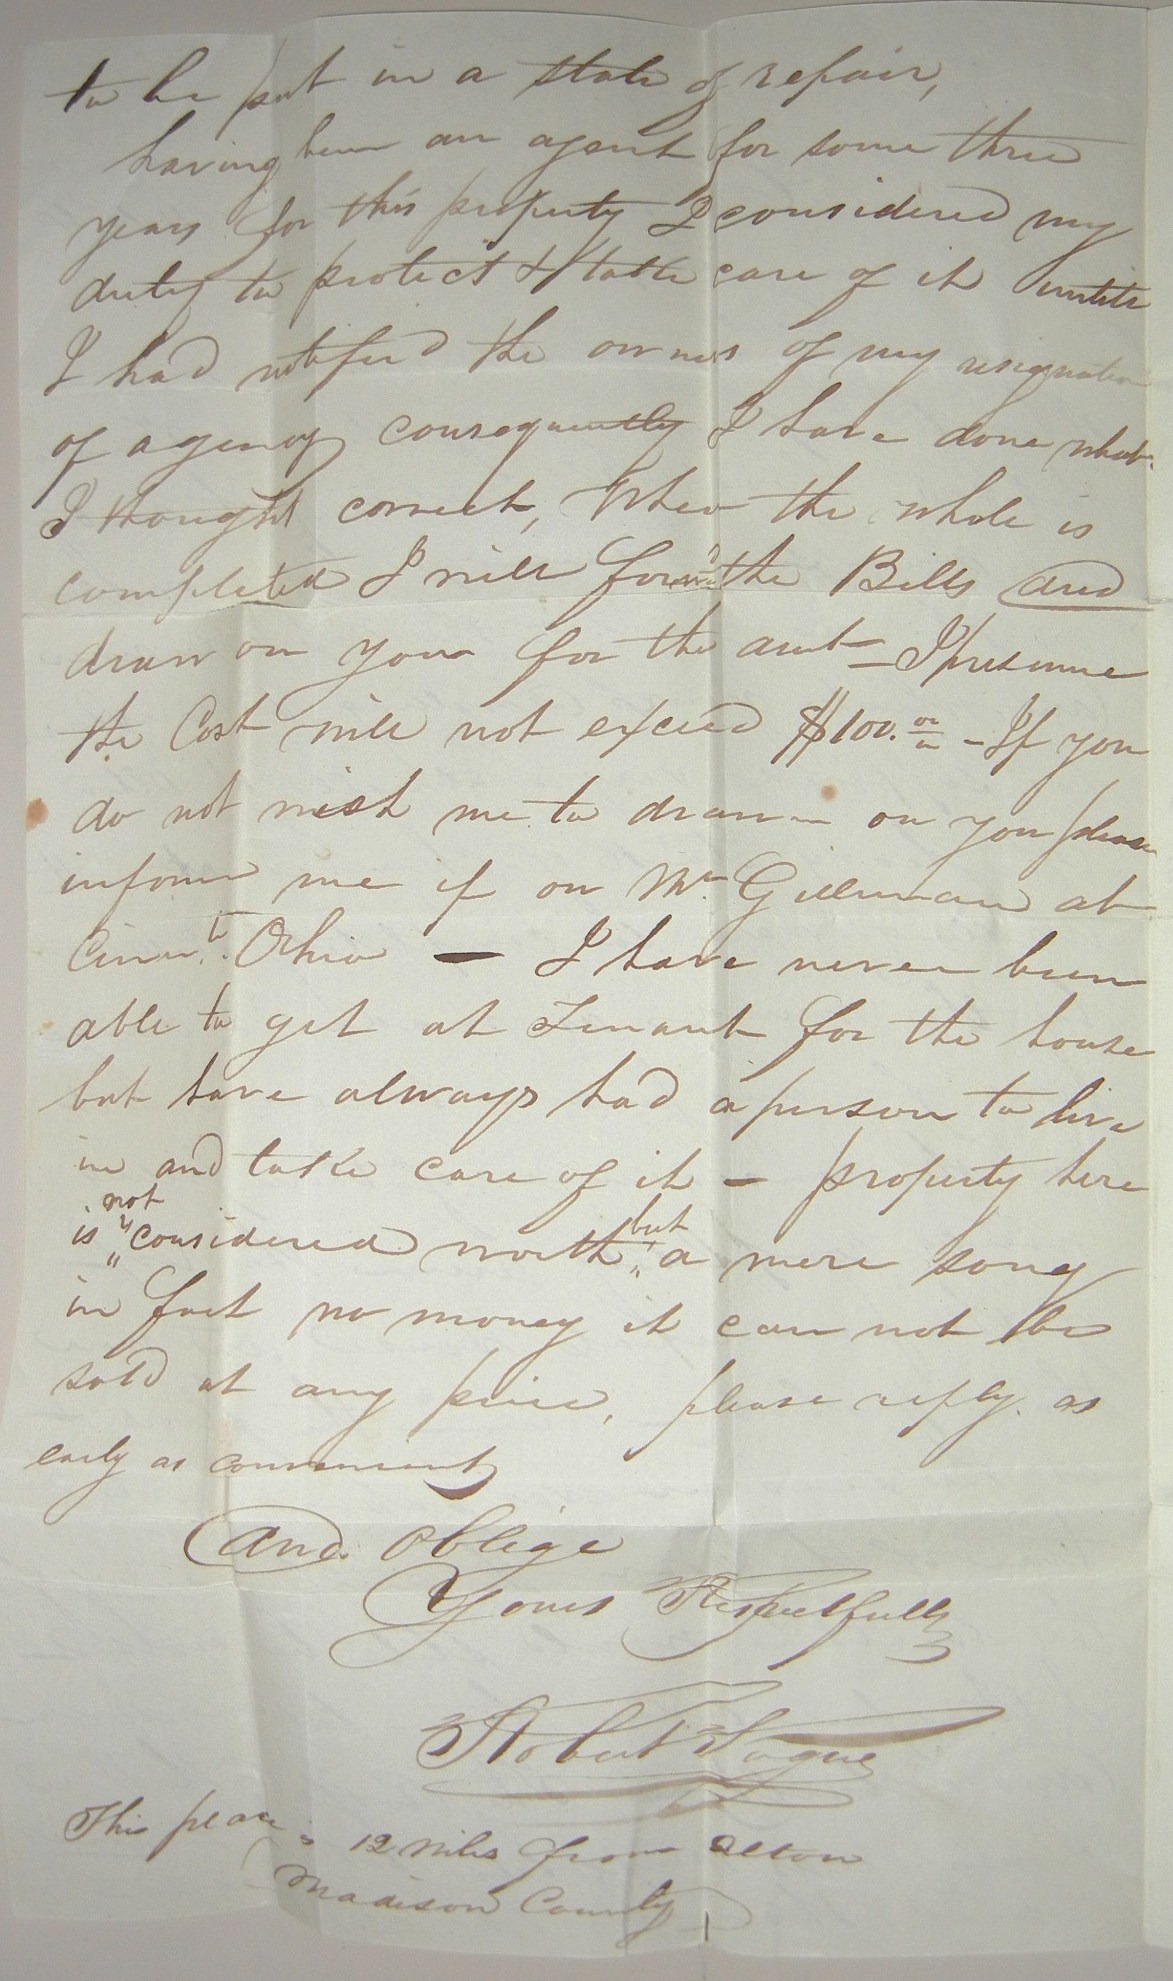 to be put in a state of repair,
having been an agent for some three
years for this property I considered my
duty to protect & take care of it untill
I had notifed the owners of my resignation
of agency consequently I have done what
I thought correct, When the whole is
completed I will forwd the Bills and
draw on you for the amt - I presume
the Cost will not exceed $100.00 - If you
do not wish me to draw on you please
inform me if on Mr. Gillman at
Cinn.ti Ohio - I have never been
able to get at Tenant for the house
but have always had a person to live
in and take care of it - property here
is not considered worth but a mere song
in fact no money it can not be
sold at any price, please reply as
early as convenient
and oblige
Yours Respectfully
Robert
This place is 12 miles from Alton
Madison County